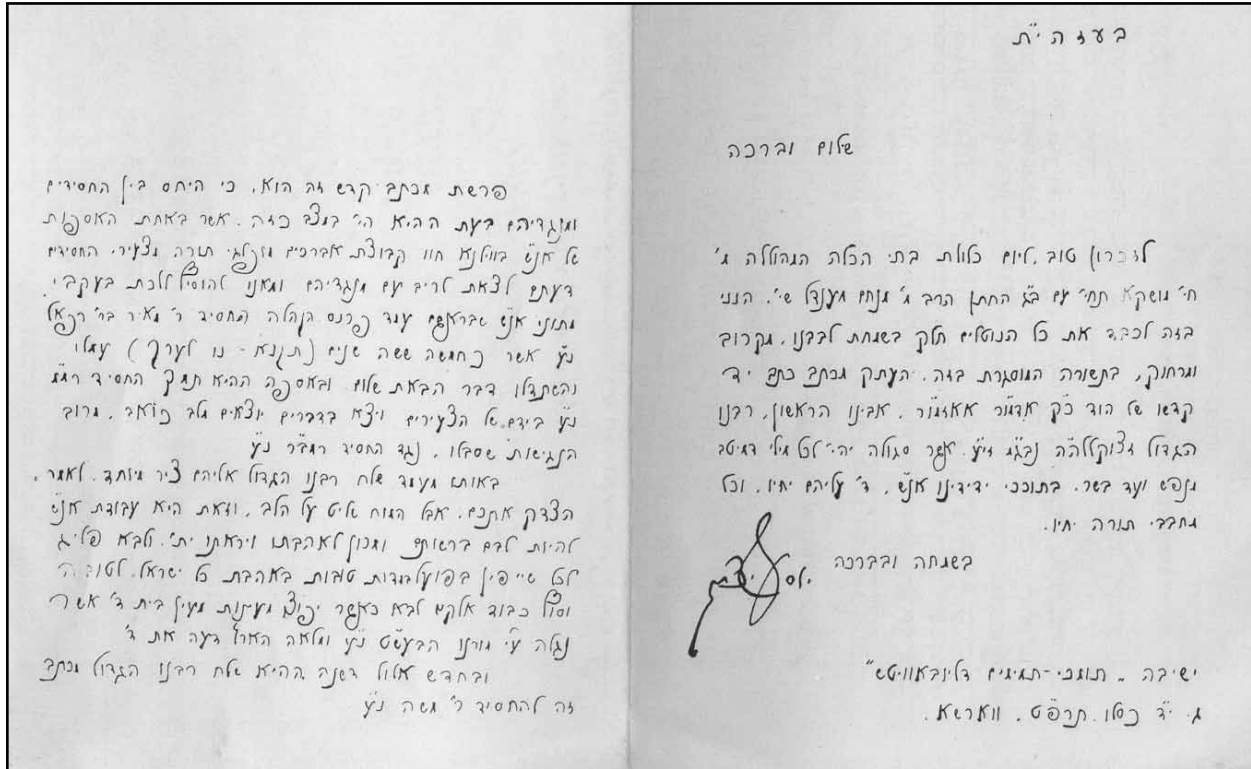 בעזהי"ת
שלום וברכה
לזכרון טוב, ליום כלולת בתי הכלה המהוללה מ'
חי' מושקא תחי' עם ב"ג החתן הרב מ' מנחם מענדל שי', הנני
בזה לכבד את כל הנוטלים חלק בשמחת לבבנו, מקרוב
ומרחוק, בתשורה המוסגרת בזה, העתק מכתב כתב יד
קדשו של הוד כ"ק אדמו"ר אאזמו"ר, אבינו הראשון, רבנו
הגדול זצוקללה"ה נבג"מ זי"ע, אשר סגולה יהי' לכל מילי דמיטב
מנפש ועד בשר, בתוככי ידידינו אנ"ש, ד' עליהם יחיו, וכל
מחבבי תורה יחיו.
בשמחה ובברכה
ישיבה „תומכי-תמימים דליובאוויטש"
ג. י"ד כסלו תרפ"ט. ווארשא.
פרשת מכתב קדש זה הוא, כי היחס בין החסידים
ומנגדיהם בעת ההיא הי' במצב כזה, אשר באחת האספות
של אנ"ש בווילנא חוו קבוצת אברכים מופלגי תורה מצעירי החסידים
דעתם לצאת לריב עם מנגדיהם ומאנו להוסיף ללכת בעקבי
מתוני אנ"ש שבראשם עמד פרנס הנהלה החסיד ר' מאיר בר' רפאל
נ"ע אשר כחמשה ששה שנים (תקנא - נו לערך) עמלו
והשתדלו דבר הבאת שלום, ובאספה ההיא תמך החסיד רמ"מ
נ"ע בידם של הצעירים ויצא בדברים יוצאים מלב כואב, מרוב
הנגישות שסבלו, נגד החסיד רמב"ר נ"ע
באותו מעמד שלח רבנו הגדול אליהם ציר מיוחד, לאמר,
הצדק אתכם, אבל המוח שליט על הלב, וזאת היא עבודת אנ"ש
להיות לבם ברשותם ומכוון לאהבתו ויראתו ית', ולבא פליג
לכל שייפין בפועל בגדות טובות באהבת כל ישראל, לטובה
וסוף כבוד אלקים לבא כאשר יפוצו מעינות מעין בית ד' אשר
נגלה ע"י מורנו הבעש"ט נ"ע ומלאה הארץ דעה את ד'
ובחדש אלול דשנה ההיא שלח רבנו הגדול מכתב
זה להחסיד ר' משה נ"ע